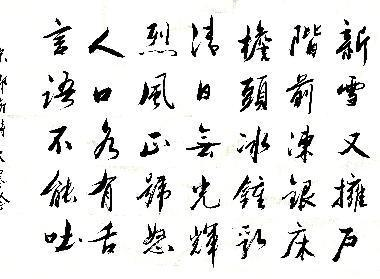 新雪又擁戶
階前凍銀床
檐頭冰鐘乳
清日無光輝
烈風正號怒
人口各有舌
言語不能吐